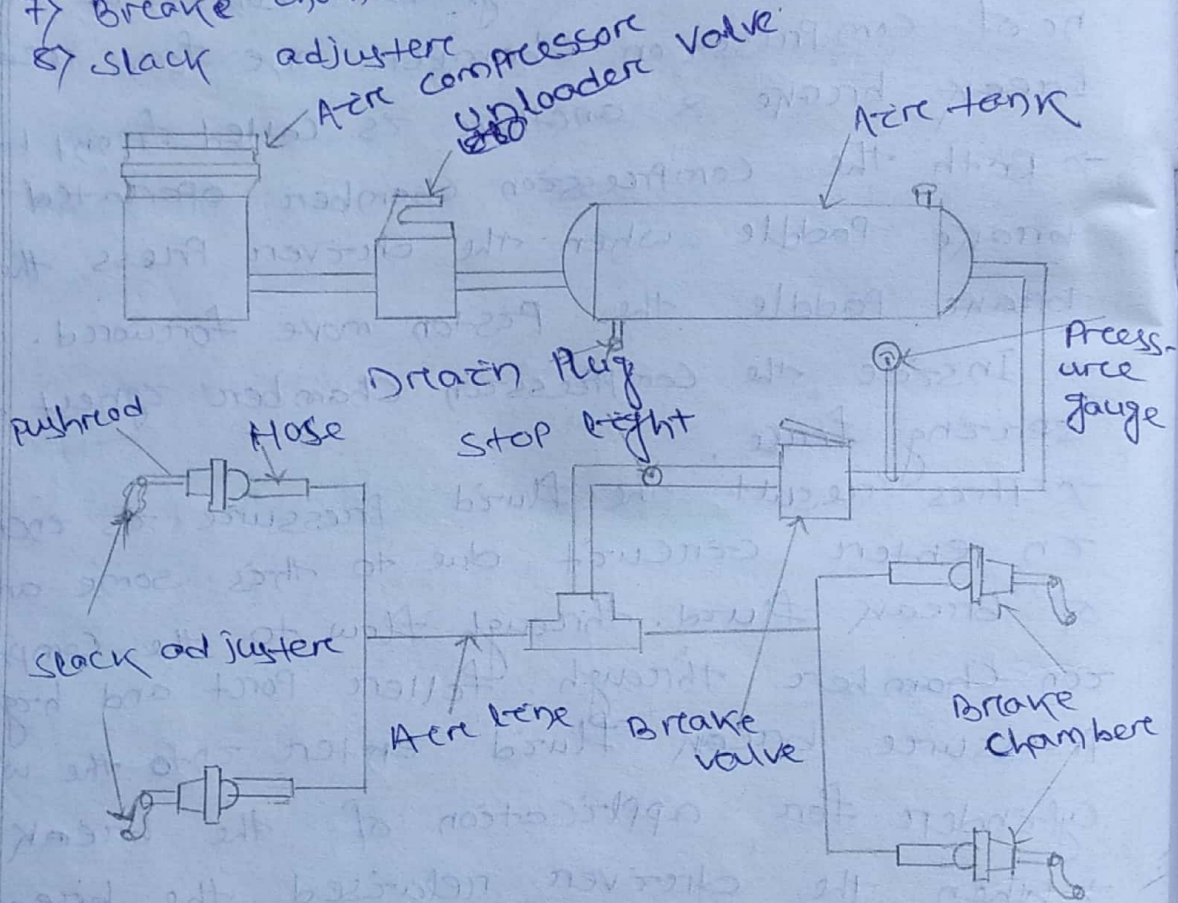 7) Breake
8) Slack adjustere
Aire compressore
Unloadere valve
Aire tank
Dreain Plug
Preess-
uree
gauge
pushrod
Hose
Stop light
Slack adjustere
Aire line
Breake
valve
Breake
chambere